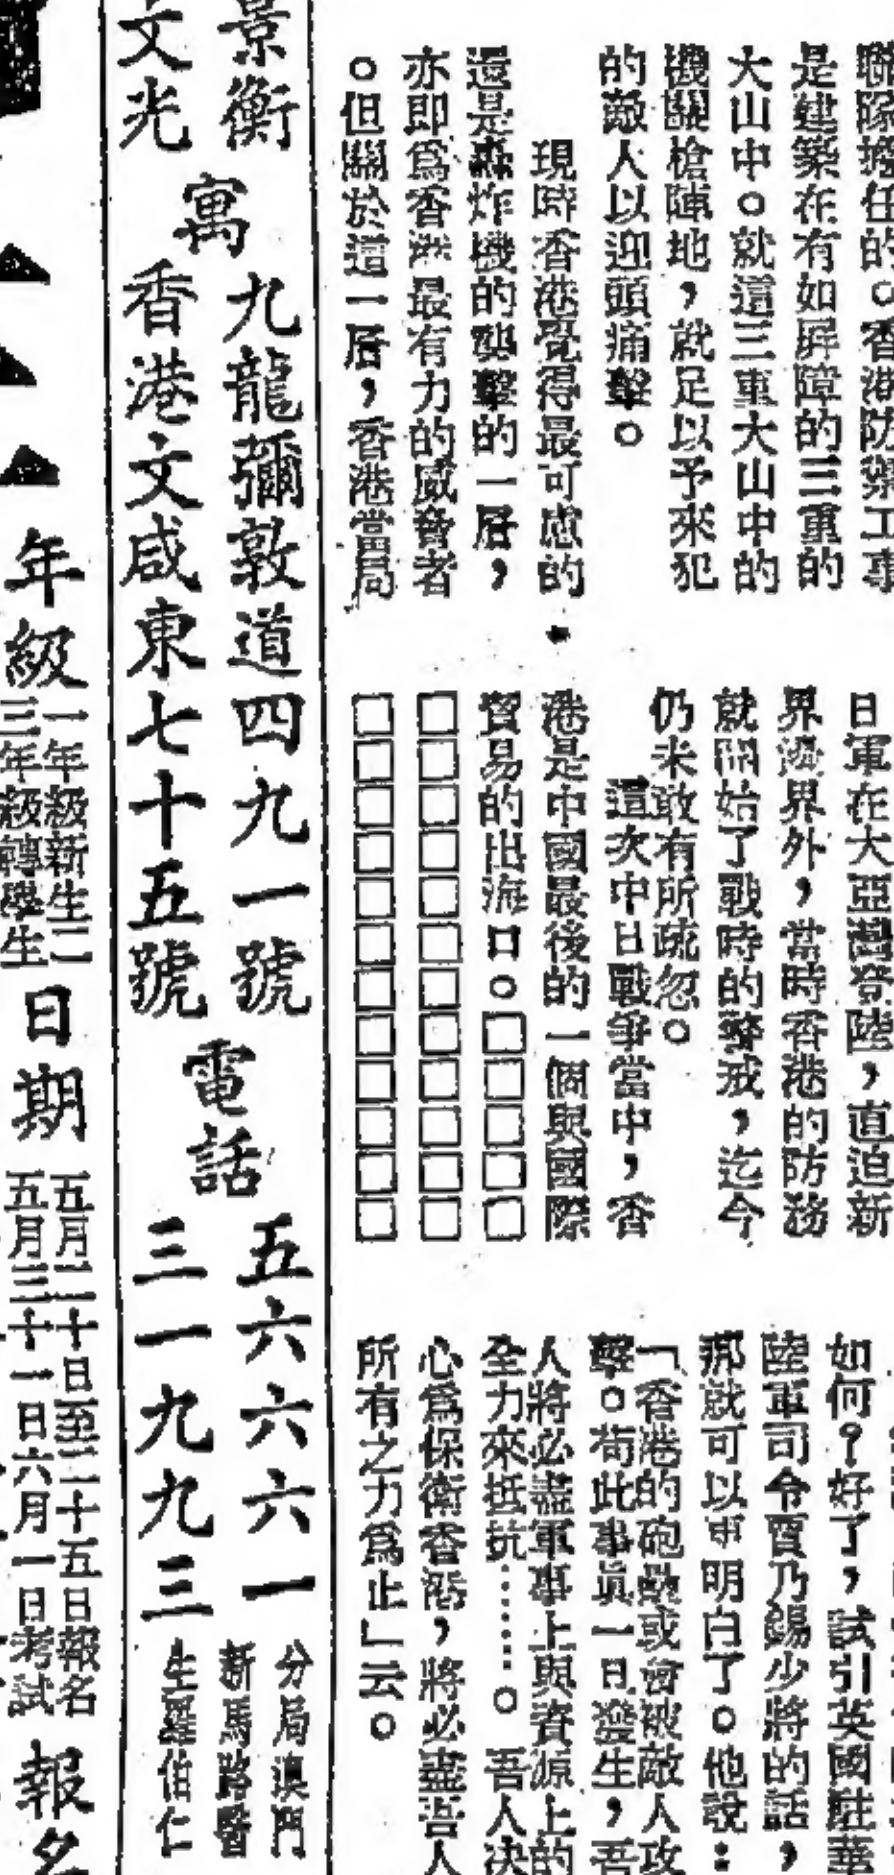 聯隊擔任的。香港防禦工事
是建築在有如屏障的三重的
大山中。就這三重大山中的
機關槍陣地，就足以予來犯
的敵人以迎頭痛擊。
現時香港覺得最可慮的
還是轟炸機的襲擊的一層，
亦即爲香港最有力的威脅者
。但關於這一層，香港當局
日軍在大亞灣登陸，直迫新
界邊界外，當時香港的防務
就開始了戰時的警戒，迄今
仍未敢有所疏忽。
這次中日戰爭當中，香
港是中國最後的一個與國際
貿易的出海口。□□□□□
□□□□□□□□□□□□
□□□□□□□□□□□□
如何？好了，試引英國駐華
陸軍司令賈乃錫少將的話，
那就可以更明白了。他說：
「香港的砲壘或會被敵人攻
擊。苟此事眞一旦發生，吾
人將必盡軍事上與資源上的
全力來抵抗……。吾人决
心爲保衛香港，將必盡吾人
所有之力爲止」云。
景衡
文光
寓
九龍彌敦道四九一號
香港文咸東七十五號
電話
五六六六一
三一九九三
分局澳門
新馬路醫
生羅伯仁
年級
一年級新生二
三年級轉學生
日期
五月二十日至二十五日報名
五月三十一日六月一日考試
報名